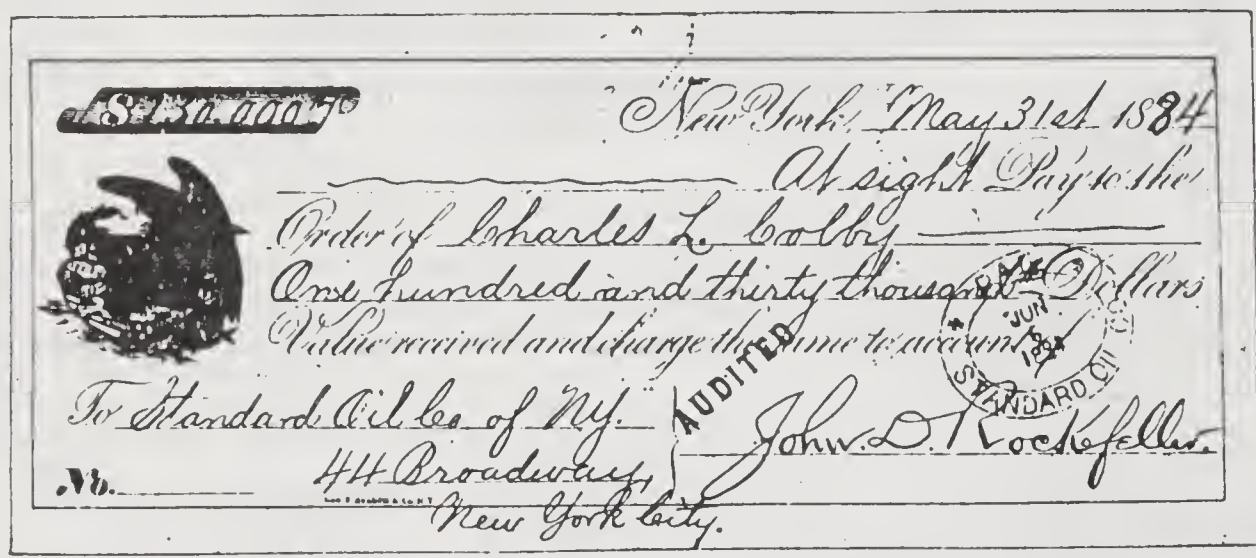 $130,000
New York, May 31st 1884
At sight Pay to the
Order of Charles L. Colby
One hundred and thirty thousand Dollars
Value received and charge the same to account
PAID
JUN
5
1884
STANDARD OIL CO
AUDITED
To Standard Oil Co of NY.
John D. Rockefeller.
44 Broadway,
No.
New York City.